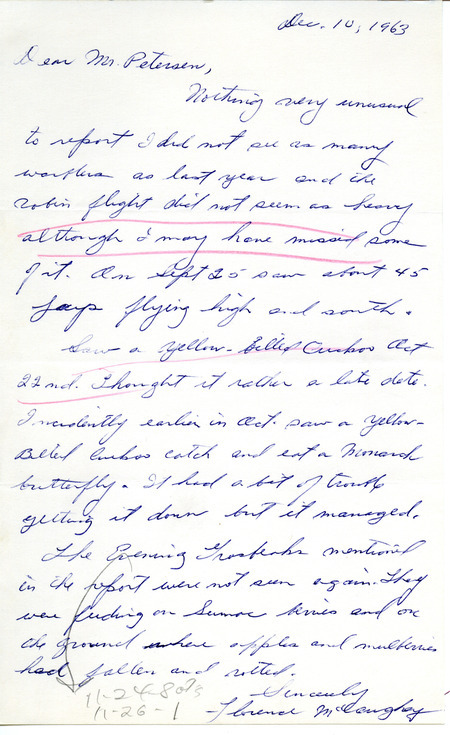 Dec. 10, 1963
Dear Mr. Petersen,
Nothing very unusual
to report I did not see as many
warblers as last year and the
robin flight did not seem as heavy
although I may have missed some
of it. On Sept 25 saw about 45
Jays flying high and south.
Saw a Yellow-Billed Cuckoo Oct
22nd. Thought it rather a late date.
Incidently earlier in Oct. saw a Yellow-
Billed Cuckoo catch and eat a Monarch
butterfly. It had a bit of trouble
getting it down but it managed.
The Evening Grosbeaks mentioned
in the report were not seen again. They
were feeding on Sumac berries and on
the ground where apples and mulberries
had fallen and rotted.
Sincerely
Florence McLaughry
11-24-8
11-26-1